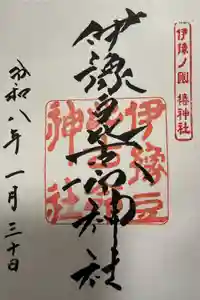 伊豫ノ國 椿神社
伊豫豆比古命神社
伊豫豆
神社
令和八年 一月三十日